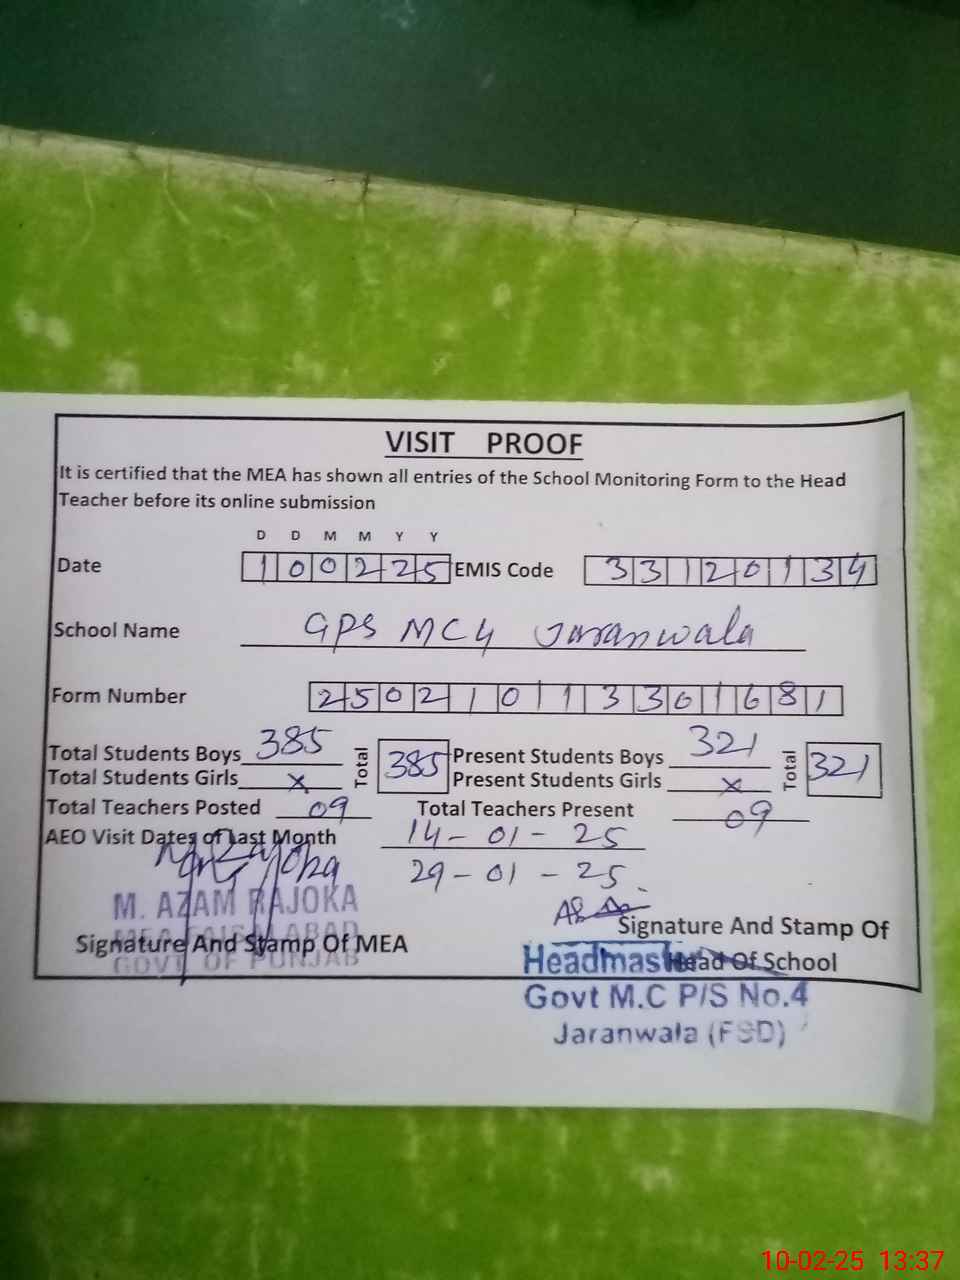 VISIT PROOF
It is certified that the MEA has shown all entries of the School Monitoring Form to the Head
Teacher before its online submission
D D M M Y Y
Date 100225 EMIS Code 33120134
School Name GPS MC4 Jaranwala
Form Number 250210113301681
Total Students Boys 385 Total 385 Present Students Boys 321 Total 321
Total Students Girls x Present Students Girls x
Total Teachers Posted 09 Total Teachers Present 09
AEO Visit Dates of Last Month 14-01-25
29-01-25
M. AZAM RAJOKA
MEA FAISALABAD
GOVT OF PUNJAB
Signature And Stamp Of MEA
Signature And Stamp Of
Head Of School
Headmaster
Govt M.C P/S No.4
Jaranwala (FSD)
10-02-25 13:37